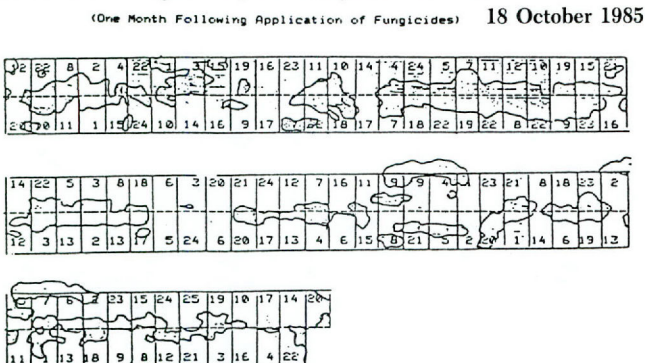 (One Month Following Application of Fungicides) 18 October 1985
22 22 8 2 4 22 1 3 15 19 16 23 11 10 14 4 24 5 7 11 12 10 19 15
20 20 11 1 15 24 10 14 16 9 17 18 17 7 18 22 19 22 8 22 9 23 16
14 22 5 3 8 18 6 3 20 21 24 12 7 16 11 9 9 4 23 21 8 18 23 2
12 3 13 2 13 17 5 24 6 20 17 13 4 6 15 8 21 5 2 20 1 14 6 19 13
7 6 2 23 15 24 25 19 10 17 14 20
11 1 13 18 9 8 12 21 3 16 4 22